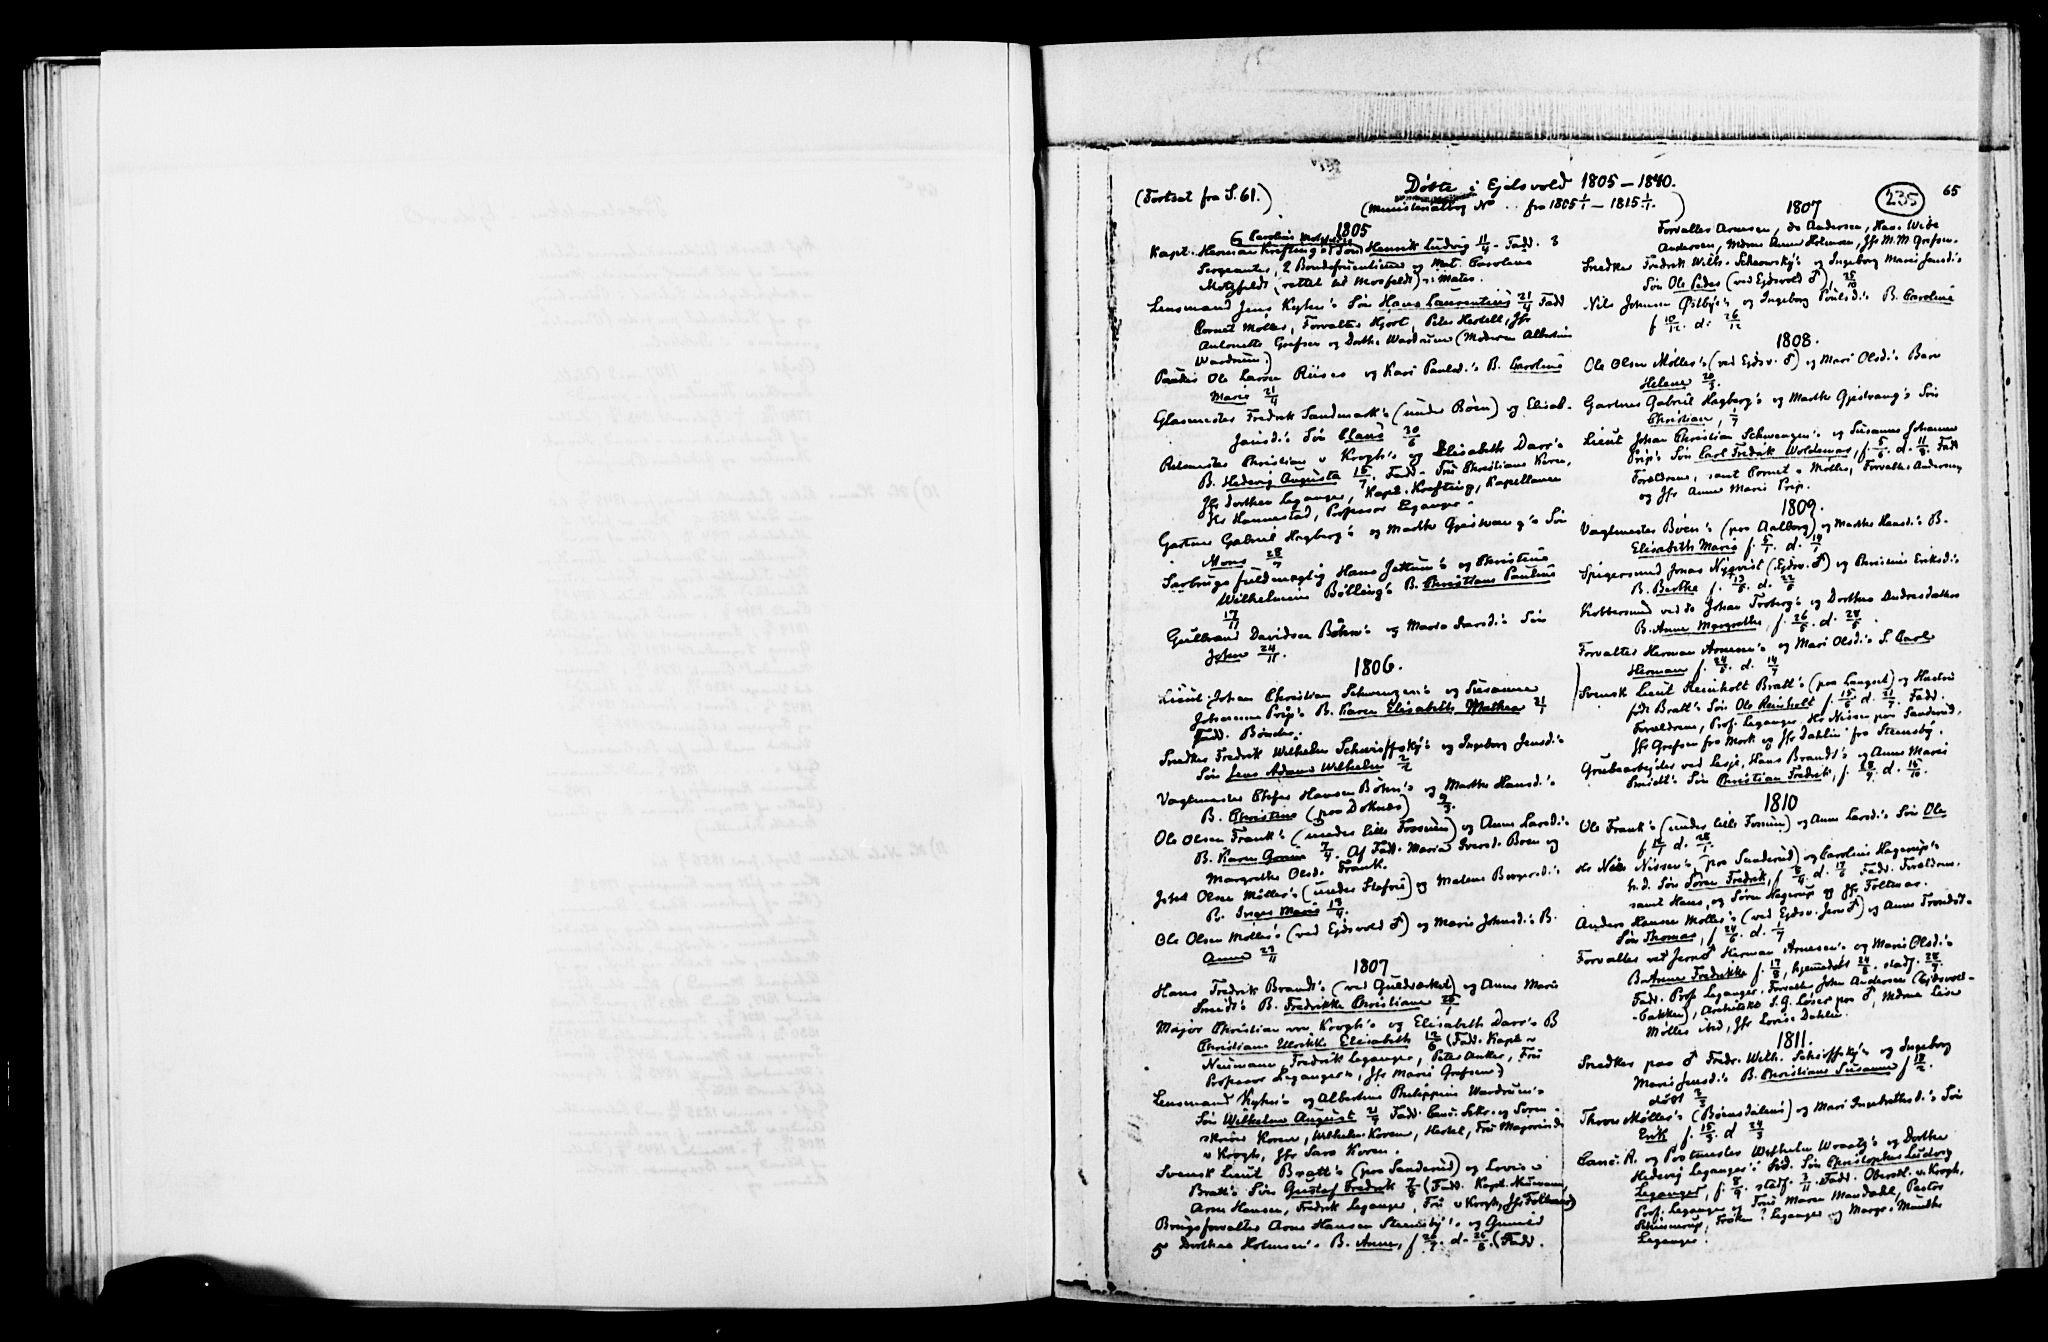 (Fortsat fra S. 61.)
Døbte i Ejdsvold 1805–1840.
(Ministerialbog No .. fra 1805 1/1 – 1815 1/1.)
235
65
1805
Kapt. Herman Krefting og Søn Henrik Ludvig 11/4 - Fadd. 3
Sergeanter, 2 og Mat. Caroline
Motzfeldt (rettet til Mosfeldt)
Lensmand Jens Kyhn's Søn Hans Laurentius 21/4 Fadd
Cornet Møller, Forvalter Hjort, Peter Hertell, Jfr
Antonette Grefsen og Dorthe Wardrum (Moderen Albertine
Wardrum.)
Ole Larsen Riises og Kari Paulsd.'s B. Caroline
Marie 21/4
Glasmester Fredrik Sandmark's (under Bøen) og Elisab.
Jansd.'s Søn Claus 30/6
Retmester Christian v Krogh's og Elisabeth Darr's
B. Hedevig Augusta 15/7. Fadd. Fru Christiane Koren,
Jfr Dorthea Leganger, Kapt. Krefting, Kapellanen
Hr Hannestad, Professor Leganger.
Gartner Gabriel Hagberg's og Marthe Gjestvang's Søn
Mons 28/7
Sarbrugsfuldmægtig Hans Jottum's og Christine
Wilhelmine Bölling's B. Christiane Pauline
17/11
Gulbrand Davidsen Bøhn's og Maria Larsd.'s Søn
John 24/11.
1806.
Lieut. Johan Christian Schwenzen's og Susanne
Johanne Prip's B. Karen Elisabeth Mathea 21/1
Fadd. Bønder.
Snedker Fredrik Wilhelm Schwioffsky's og Ingeborg Jensd.'s
Søn Jens Adam Wilhelm 2/2
Vagtmester Hansen Bøhn's og Marthe Hansd.'s
B. Christine (paa Doknæs) 9/3.
Ole Olsen Frank's (under lille Fossum) og Anne Larsd.'s
B. Karen Gorine 7/4. Af Fadd. Maria Iversd. Boen og
Margrethe Olsd. Frank.
Johan Olsen Møller's (under Stefoss) og Malene Borgersd.'s
B. Inger Marie 13/4.
Ole Olsen Møller's (ved Ejdsvold ♂) og Marie Johnsd.'s B.
Anne 23/11
1807
Hans Fredrik Brandt's (ved Guldværket) og Anne Marie
Smidt's B. Fredrikke Christiane 26/1
Major Christian von Krogh's og Elisabeth Darr's B
Christiane Ulrikke Elisabeth 12/6 (Fadd. Kapt v
Neumann, Fredrik Leganger, Peter Anker, Fru
Professor Leganger, Jfr Marie Grefsen)
Lensmand Kyhn's og Albertine Philippine Wardrum's
Søn Wilhelm August 21/7 Fadd. Canc. Sekr. og Soren-
skriver Koren, Wilhelm Koren, Hertel, Fru Majorinde
v Krogh, Jfr Sara Koren.
Svensk Lieut Bratt's (paa Sanderud) og Lovis v
Bratt's Søn Gustaf Fredrik 7/8 (Fadd. Kapt. Neumann,
Arne Hansen, Fredrik Leganger, Fru v Krogh, Jfr Foltmar)
Brugsforvalter Arne Hansen Stensby's og Gunild
5 Dorthea Holmsen's B. Anne, f 20/7. d. 26/8. (Fadd.
1807
Forvalter Arnesen, do Andersen, Hans Wibe
Andersen, Mdme Anne Holmsen, Jfr M. M Grefsen.
Snedker Fredrik Wilh. Scheowsky's og Ingeborg Marie Jensd.'s
Søn Ole Peder (ved Ejdsvold ♂), 25/10
Nils Johnsen Østbye's og Ingeborg Poulsd.'s B. Caroline
f 10/12. d. 26/12
1808.
Ole Olsen Møller's (ved Ejdsv. ♂) og Mari Olsd.'s Barn
Helene 20/3.
Gartner Gabriel Hagberg's og Marthe Gjestvang's Søn
Christian, 1/7
Lieut Johan Christian Schwenzen's og Susanne Johanne
Prip's Søn Carl Fredrik Woldemar, f. 5/6 d. 11/9. Fadd
Forældrene, samt Cornet v Møller, Forvalter Andersen
og Jfr Anne Marie Prip.
1809.
Vagtmester Bøen's (paa Aalborg) og Marthe Hansd.'s B.
Elisabeth Marie f. 5/1. d. 19/1
Spigersmed Jonas Nyqvist (Ejdsv. ♂) og Christine Eriksd.'s
B. Berthe f. 13/5. d. 22/5
Kobbersmed ved do Johan Troberg's og Dorthea Andersdatter
B. Anne Margrethe, f. 26/5. d. 28/5.
Forvalter Herman Arnesen's og Mari Olsd.'s S. Carl
Herman f. 24/6 d. 14/7
Svensk Lieut Reinholt Bratt's (paa Langset) og Hustru
født Bratt's Søn Ole Reinholt f. 15/6 d. 21/7. Fadd.
Forældrene, Prof. Leganger, Hr Nissen paa Sanderud,
Jfr Grefsen fra Mork og Jfr Dahlin fra Stensby.
Grubearbejder ved Lesje, Hans Brandt's og Anne Marie
Smidt's Søn Christian Fredrik, f. 28/9. d. 15/10.
1810
Ole Frank's (under lille Fossum) og Anne Larsd.'s Søn Ole
f 12/1 d. 28/1.
Hr Niels Nissen's (paa Sanderud) og Caroline Hagerup's
h. d. Søn Søren Fredrik, f 8/4. d. 17/6 Fadd. Forældrene,
samt Hans, og Søren Hagerup og Jfr Foltmar.
Anders Hansen Møller's (ved Ejdsv. Jern ♂) og Anne Trondsd.'s
Søn Thomas, f 24/6. d. 1/7
Forvalter ved Jern ♂ Herman Arnesen's og Marie Olsd.'s
B. Anne Fredrikke f. 17/8, hjemmedøbt 24/8. stadf. 28/9.
Fadd. Prof Leganger. Forvalter John Andersen (Ejdsvold-
-bakken), Architekt S. G. Løser paa ♂, Mdme Lise
Møller ibid, Jfr Lovise Dahlin.
1811.
Snedker paa ♂ Fredr. Wilh. Schioffsky's og Ingeborg
Marie Jensd.'s B. Christiane Susanne f 18/2.
døbt 3/3
Thore Møller's (Bøensdalens) og Mari Ingebrethsd.'s Søn
Erik f. 15/3. d 24/3
Canc. R. og Postmester Wilhelm Wraatz's og Dorthe
Hedevig Leganger's Søn Christopher Ludvig
Leganger, f. 8/9. stadf. 3/11. Fadd. Oberstl. v. Krogh,
Prof. Leganger og Frue Maren Mandahl, Pastor
Frøken ? Leganger og Margr. Munthe
Leganger.